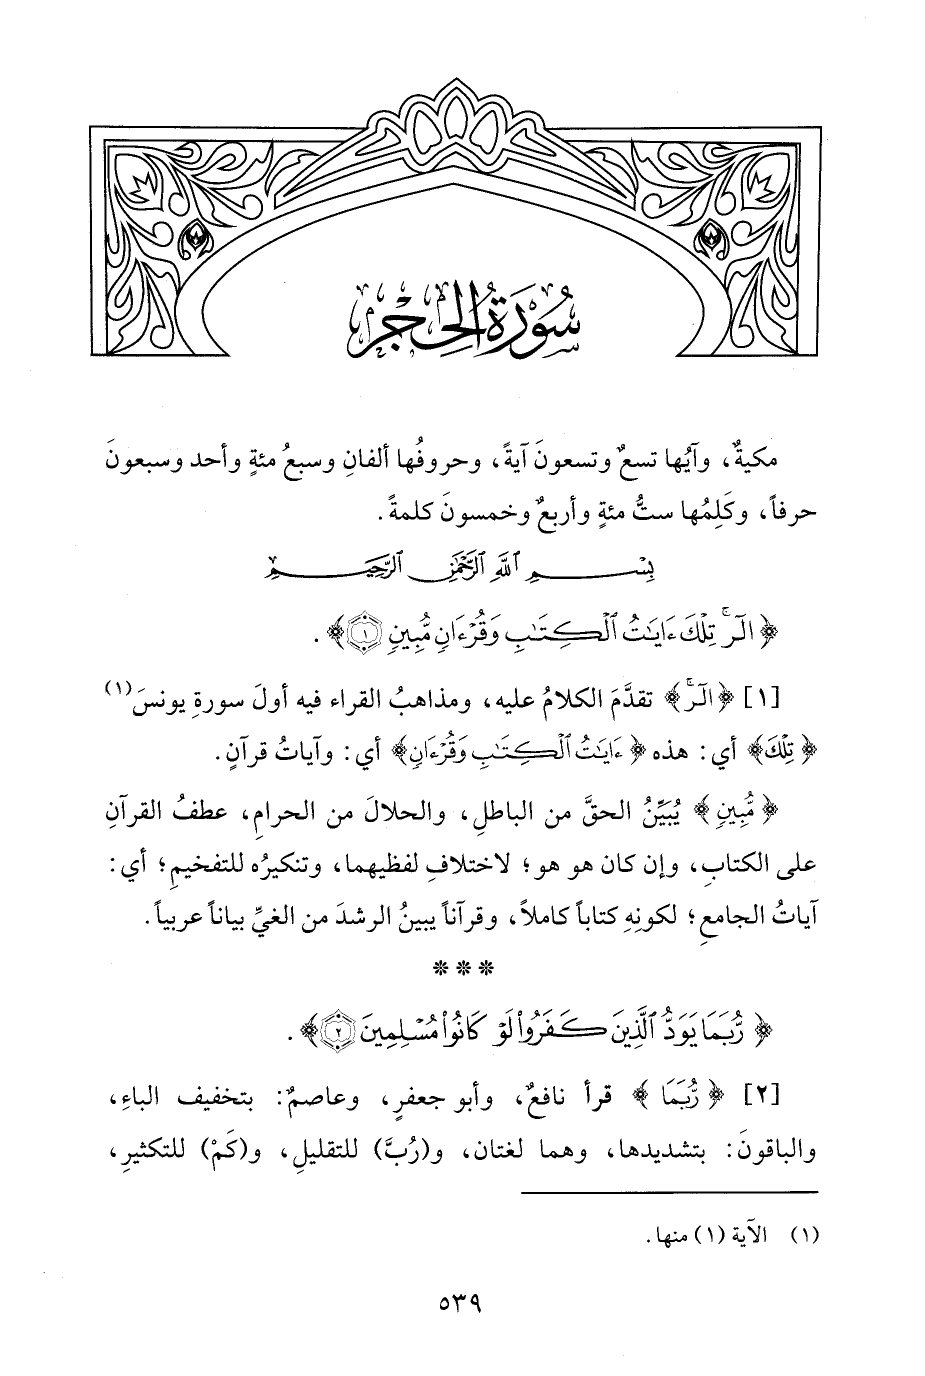 سُورَةُ الحِجْرِ
مكيةٌ، وآيُها تسعٌ وتسعونَ آيةً، وحروفُها ألفانِ وسبعُ مئةٍ وأحد وسبعونَ
حرفاً، وكَلِمُها ستُّ مئةٍ وأربعٌ وخمسونَ كلمةً.
بِسْمِ ٱللَّهِ ٱلرَّحْمَٰنِ ٱلرَّحِيمِ
﴿الٓرۚ تِلْكَ ءَايَٰتُ ٱلْكِتَٰبِ وَقُرْءَانٍ مُّبِينٍ ۝١﴾.
[١] ﴿الٓرۚ﴾ تقدَّمَ الكلامُ عليه، ومذاهبُ القراء فيه أولَ سورةِ يونسَ(١)
﴿تِلْكَ﴾ أي: هذه ﴿ءَايَٰتُ ٱلْكِتَٰبِ وَقُرْءَانٍ﴾ أي: وآياتُ قرآنٍ.
﴿مُّبِينٍ﴾ يُبَيِّنُ الحقَّ من الباطلِ، والحلالَ من الحرامِ، عطفُ القرآنِ
على الكتابِ، وإن كان هو هو؛ لاختلافِ لفظيهما، وتنكيرُه للتفخيمِ؛ أي:
آياتُ الجامعِ؛ لكونِهِ كتاباً كاملاً، وقرآناً يبينُ الرشدَ من الغيِّ بياناً عربياً.
* * *
﴿رُّبَمَا يَوَدُّ ٱلَّذِينَ كَفَرُوا۟ لَوْ كَانُوا۟ مُسْلِمِينَ ۝٢﴾.
[٢] ﴿رُّبَمَا﴾ قرأ نافعٌ، وأبو جعفرٍ، وعاصمٌ: بتخفيف الباءِ،
والباقونَ: بتشديدها، وهما لغتان، و(رُبَّ) للتقليلِ، و(كَمْ) للتكثيرِ،
(١) الآية (١) منها.
٥٣٩